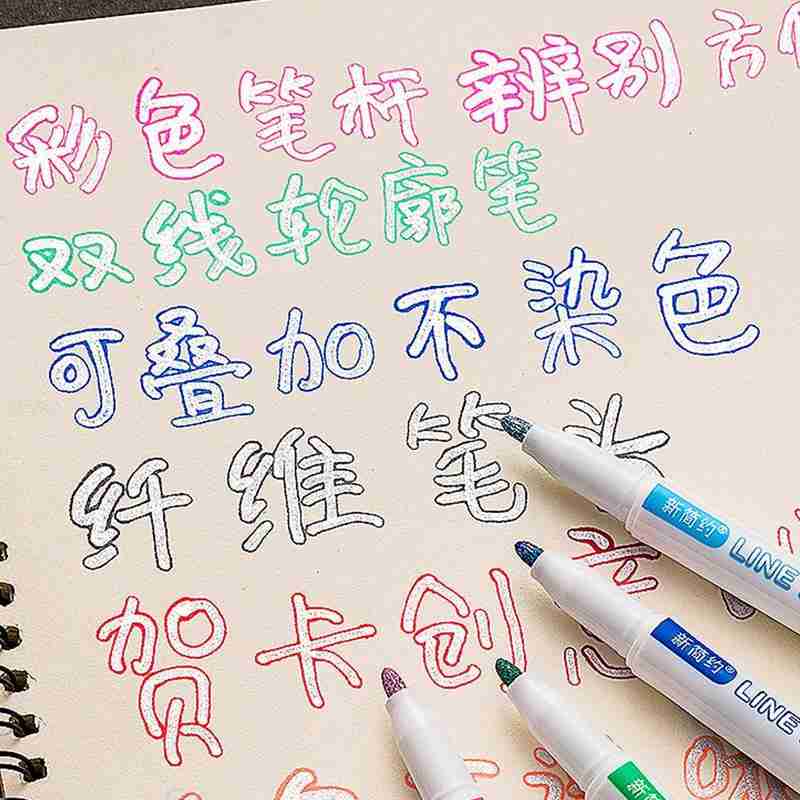 彩色笔杆辨别方便
双线轮廓笔
可叠加不染色
纤维笔头
贺卡创意
新简约® LINE
新简约® LINE
新